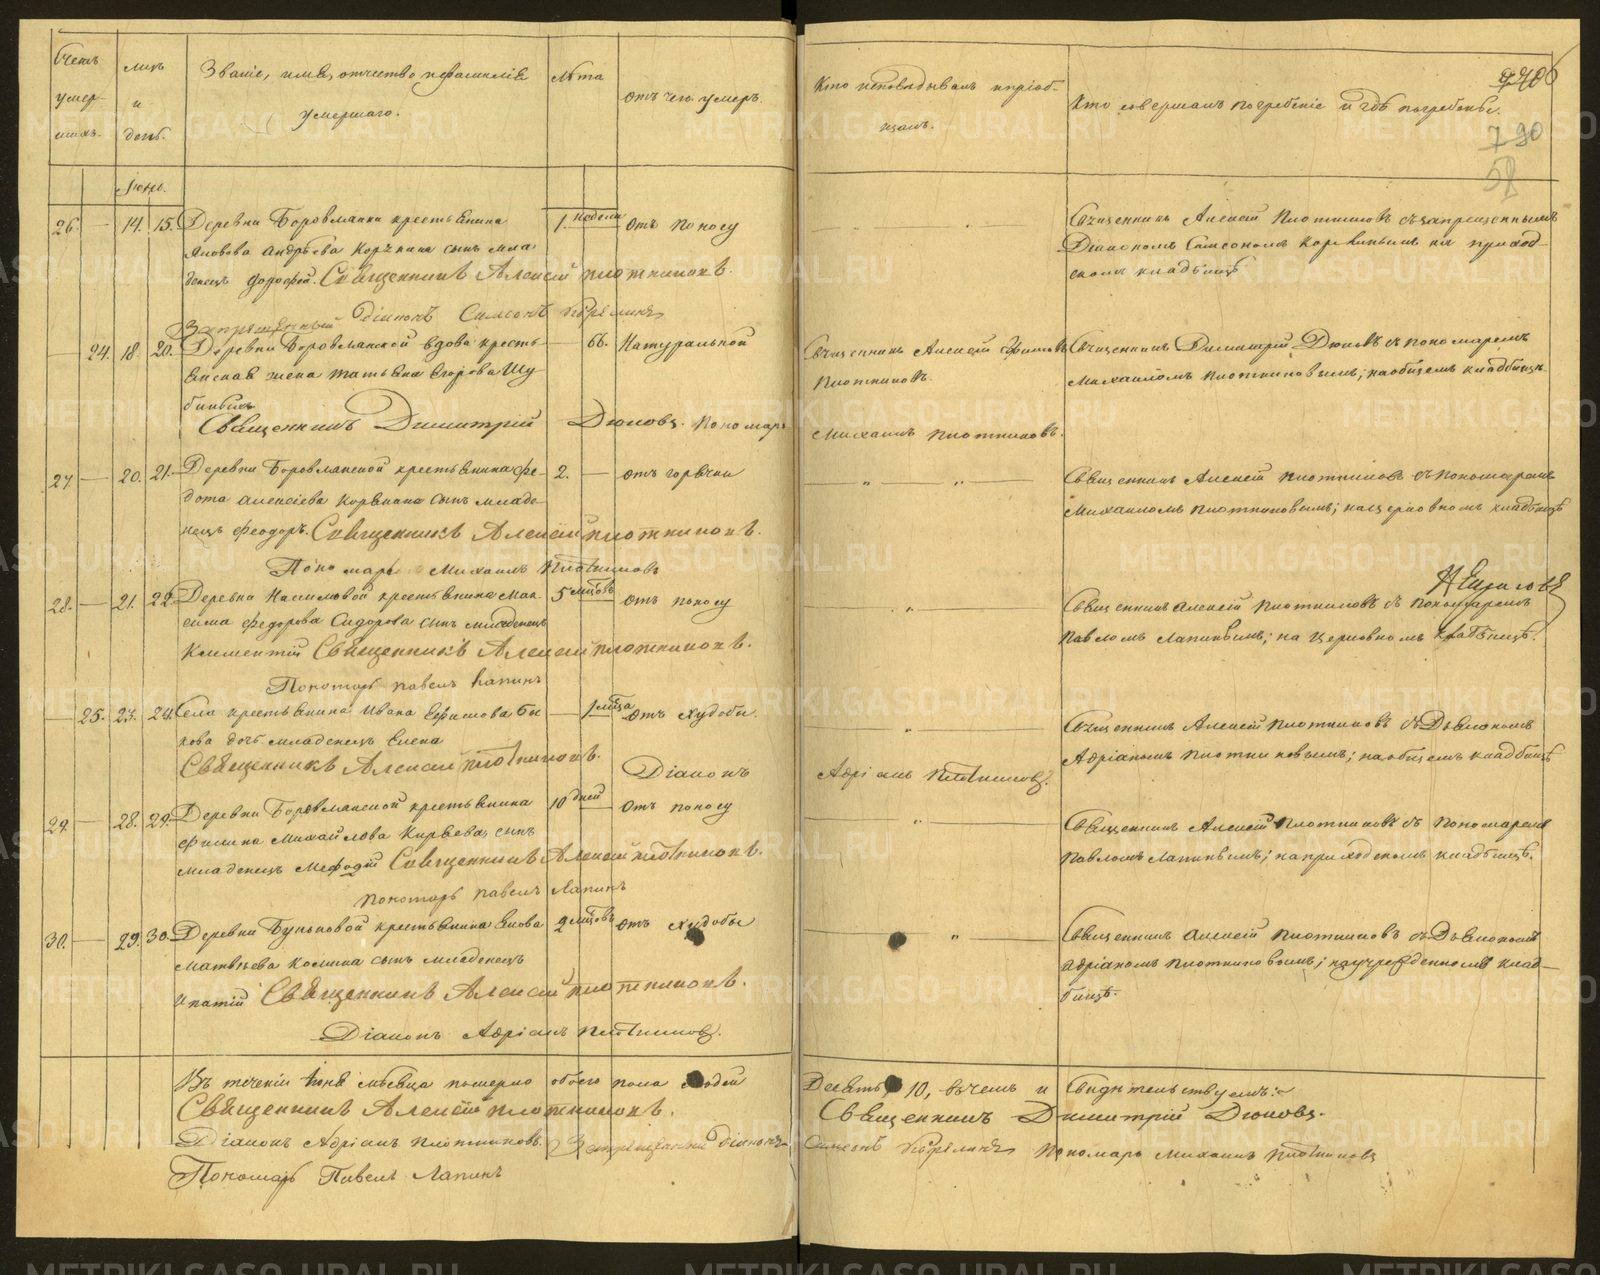 Счетъ
умер-
шихъ.
Мѣсяцъ
и
день.
Званіе, имя, отчество и фамилія
умершаго.
Лѣта
Отъ чего умеръ.
Кто исповѣдывалъ и пріоб-
щалъ.
Кто совершалъ погребеніе и гдѣ погребены.
790
58
Іюнь.
26. — 14. 15. Деревни Боровлянки крестьянина
1. недели Отъ поносу
Якова Андреева Корѣлина сынъ мла-
денецъ Дорофей. Священникъ Алексѣй Плотниковъ.
Запрещенный Діаконъ Самсонъ Корелинъ
Священникъ Алексѣй Плотниковъ съ запрещеннымъ
Діакономъ Самсономъ Корелинымъ на приход-
скомъ кладбищѣ
— 24. 18. 20. Деревни Боровлянской вдова кресть-
— 66. Натуральной
янская жена Татьяна Егорова Шу
Священникъ Димитрій Дюковъ. Пономарь
Священникъ Алексѣй Ефимовъ
Плотниковъ.
Михаилъ Плотниковъ.
Священникъ Димитрій Дюковъ съ пономаремъ
Михаиломъ Плотниковымъ; на общемъ кладбищѣ
27 — 20. 21. Деревни Боровлянской крестьянина Фе-
2. — отъ горячки
дота Алексѣева Корелина сынъ младе-
нецъ Феодоръ. Священникъ Алексѣй Плотниковъ.
Пономарь Михаилъ Плотниковъ
Священникъ Алексѣй Плотниковъ съ пономаремъ
Михаиломъ Плотниковымъ; на церковномъ кладбищѣ
28. — 21. 22. Деревни Насиловой крестьянина Мак-
5 мѣсяцовъ отъ поносу
сима Федорова Сидорова сынъ младенецъ
Климентій Священникъ Алексѣй Плотниковъ.
Пономарь Павелъ Лапинъ
Священникъ Алексѣй Плотниковъ съ пономаремъ
Павломъ Лапинымъ; на церковномъ кладбищѣ.
— 25. 23. 24. Села крестьянина Ивана Ефимова Бы
— 1 мѣсяца Отъ худобы.
кова дочь младенецъ Елена
Священникъ Алексѣй Плотниковъ.
Діаконъ
Адріанъ Плотниковъ.
Священникъ Алексѣй Плотниковъ съ Діакономъ
Адріаномъ Плотниковымъ; на общемъ кладбищѣ
29. — 28. 29. Деревни Боровлянской крестьянина
10 дней Отъ поносу
Филипа Михайлова Киряева, сынъ
младенецъ Мефодій Священникъ Алексѣй Плотниковъ.
Пономарь Павелъ Лапинъ
Священникъ Алексѣй Плотниковъ съ пономаремъ
Павломъ Лапинымъ; на приходскомъ кладбищѣ.
30. — 29. 30. Деревни Буньковой крестьянина Якова
2 мѣсяцовъ отъ худобы
Матвѣева Комина сынъ младенецъ
Ипатій Священникъ Алексѣй Плотниковъ.
Діаконъ Адріанъ Плотниковъ.
Священникъ Алексѣй Плотниковъ съ Діакономъ
Адріаномъ Плотниковымъ; на учрежденномъ клад-
бищѣ.
Въ теченіи Іюня мѣсяца померло обоего пола людей
Десять 10, въ чемъ и свидѣтельствуемъ:
Священникъ Алексѣй Плотниковъ.
Священникъ Димитрій Дюковъ.
Діаконъ Адріанъ Плотниковъ. Запрещенный Діаконъ
Самсонъ Корелинъ Пономарь Михаилъ Плотниковъ
Пономарь Павелъ Лапинъ
METRIKI.GASO-URAL.RU